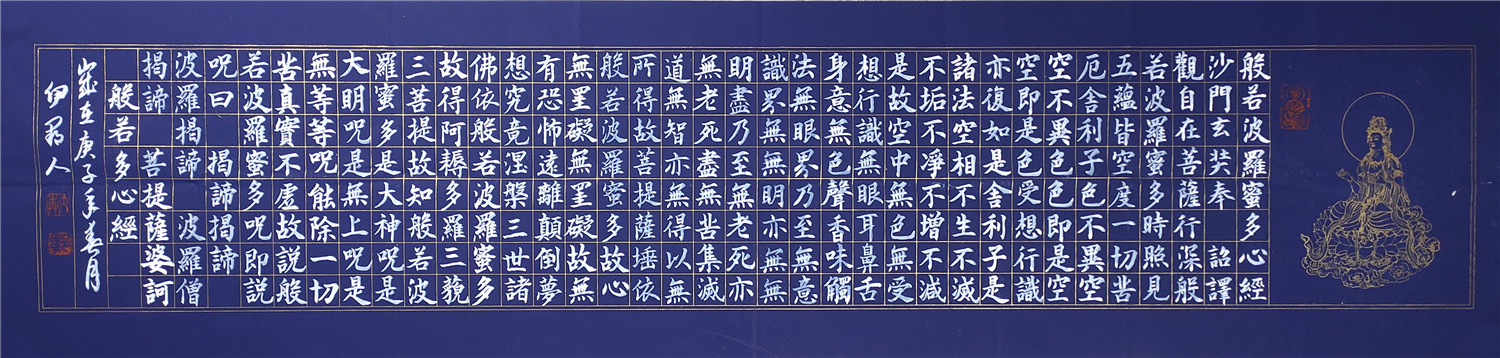 般若波羅蜜多心經
沙門玄奘奉 詔譯
觀自在菩薩行深般
若波羅蜜多時照見
五蘊皆空度一切苦
厄舍利子色不異空
空不異色色即是空
空即是色受想行識
亦復如是舍利子是
諸法空相不生不滅
不垢不淨不增不減
是故空中無色無受
想行識無眼耳鼻舌
身意無色聲香味觸
法無眼界乃至無意
識界無無明亦無無
明盡乃至無老死亦
無老死盡無苦集滅
道無智亦無得以無
所得故菩提薩埵依
般若波羅蜜多故心
無罣礙無罣礙故無
有恐怖遠離顛倒夢
想究竟涅槃三世諸
佛依般若波羅蜜多
故得阿耨多羅三藐
三菩提故知般若波
羅蜜多是大神呪是
大明呪是無上呪是
無等等呪能除一切
苦真實不虛故説般
若波羅蜜多呪即説
呪曰 揭諦揭諦
波羅揭諦 波羅僧
揭諦 菩提薩婆訶
般若多心經
歲在庚子年春月